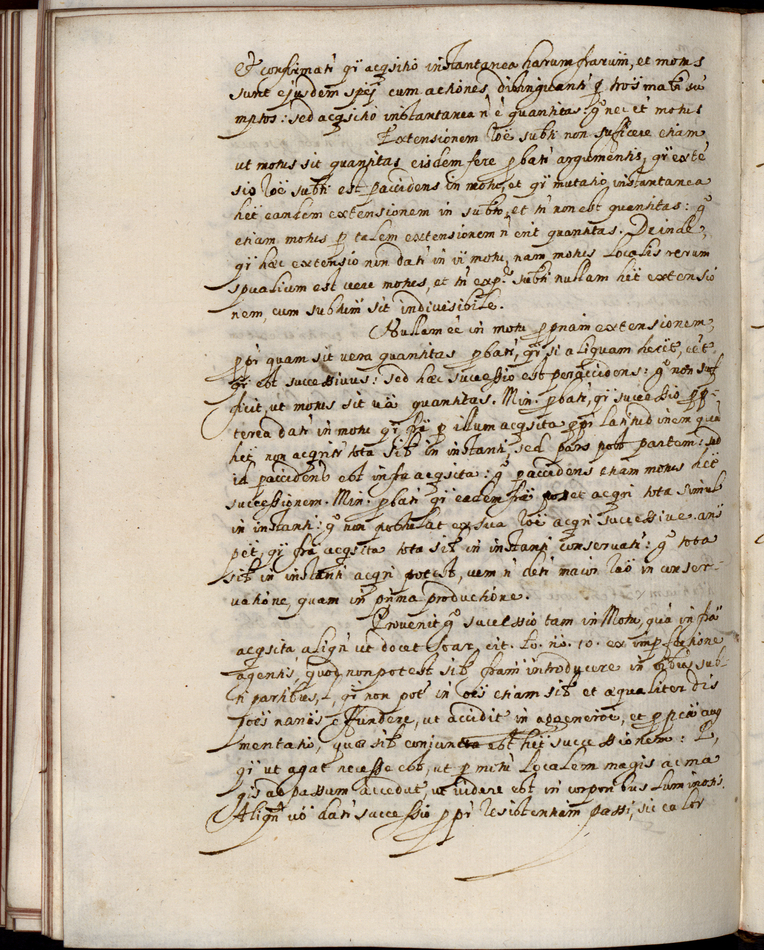 Et confirmatr qr̄ acqsitio instantanea harum frarum, et motus
sunt ejusdem spēi cum actiones distinguantr
mptos: sed acqsitio instantanea n̄ ē quantitas: gͦ nec et motus
Extensionem roē subti non sufficere etiam
ut motus sit quantitas eisdem fere pbatr argumentis, qr̄ exte
sio roē subti est p accidens in motu, et qr̄ mutatio instantanea
het eandem extensionem in subto, et tn̄ non est quantitas: gͦ
etiam motus p talem extensionem n̄ erit quantitas. Deinde,
qr̄ haec extensio non datr in oi motu, nam motus localis rerum
spualium est vere motus, et tn̄ ex p. subti nullam het extensio
nem, cum subtum sit indivisibile.
Nullam ēē in motu ppriam extensionem,
ppr quam sit vera quantitas pbatr, qr̄ si aliquam heret, eēt
qr̄ est successivus: sed haec successio est per accidens: gͦ non suf
ficit, ut motus sit va quantitas. Min. pbatr, qr̄ successio pp
terea datr in motu qr̄ fra p illum acqsita ppr latitudinem quā
het non acqritr tota sil in instanti, sed pars post partem: sed
id p accidens est in fra acqsita: gͦ p accidens etiam motus het
successionem. Min. pbatr qr̄ eadem fra posset acqri tota simul
in instanti: gͦ non postulat ex sua roē acqri successive. ans
pet, qr̄ fra acqsita tota sil in instanti conservatr: gͦ tota
sil in instanti acqri potest, uem n̄ detr maior rao in conser-
vatione, quam in prima productione.
Provenit gͦ successio tam in Motu, quā in fra
acqsita aliqn ut docet Soar. cit. to. no. 10. ex imperfectione
agentis, quod non potest sil fram introducere in oibus sub-
ti partibus, l, qr̄ non pot in oēs etiam sil et aequaliter dis
roēs effundere, ut accidit in adgeneroē, et p pciā aug
mentatio, quae sil conjuncta est het successionem: l,
qr̄ ut agat necesse est, ut p motū localem magis ac ma
gis ad passum accedat, ut videre est in corporibus luminosis.
Aliqn vo datr successio ppr resistentiam passi, sic calor